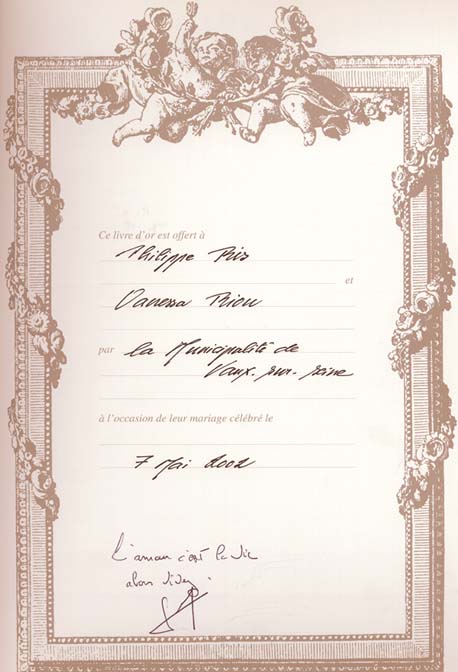 Ce livre d'or est offert à
Philippe Pris
et
Vanessa Triou
par la Municipalité de
Vaux-sur-Seine
à l'occasion de leur mariage célébré le
7 Mai 2002
L'amour c'est la vie
alors